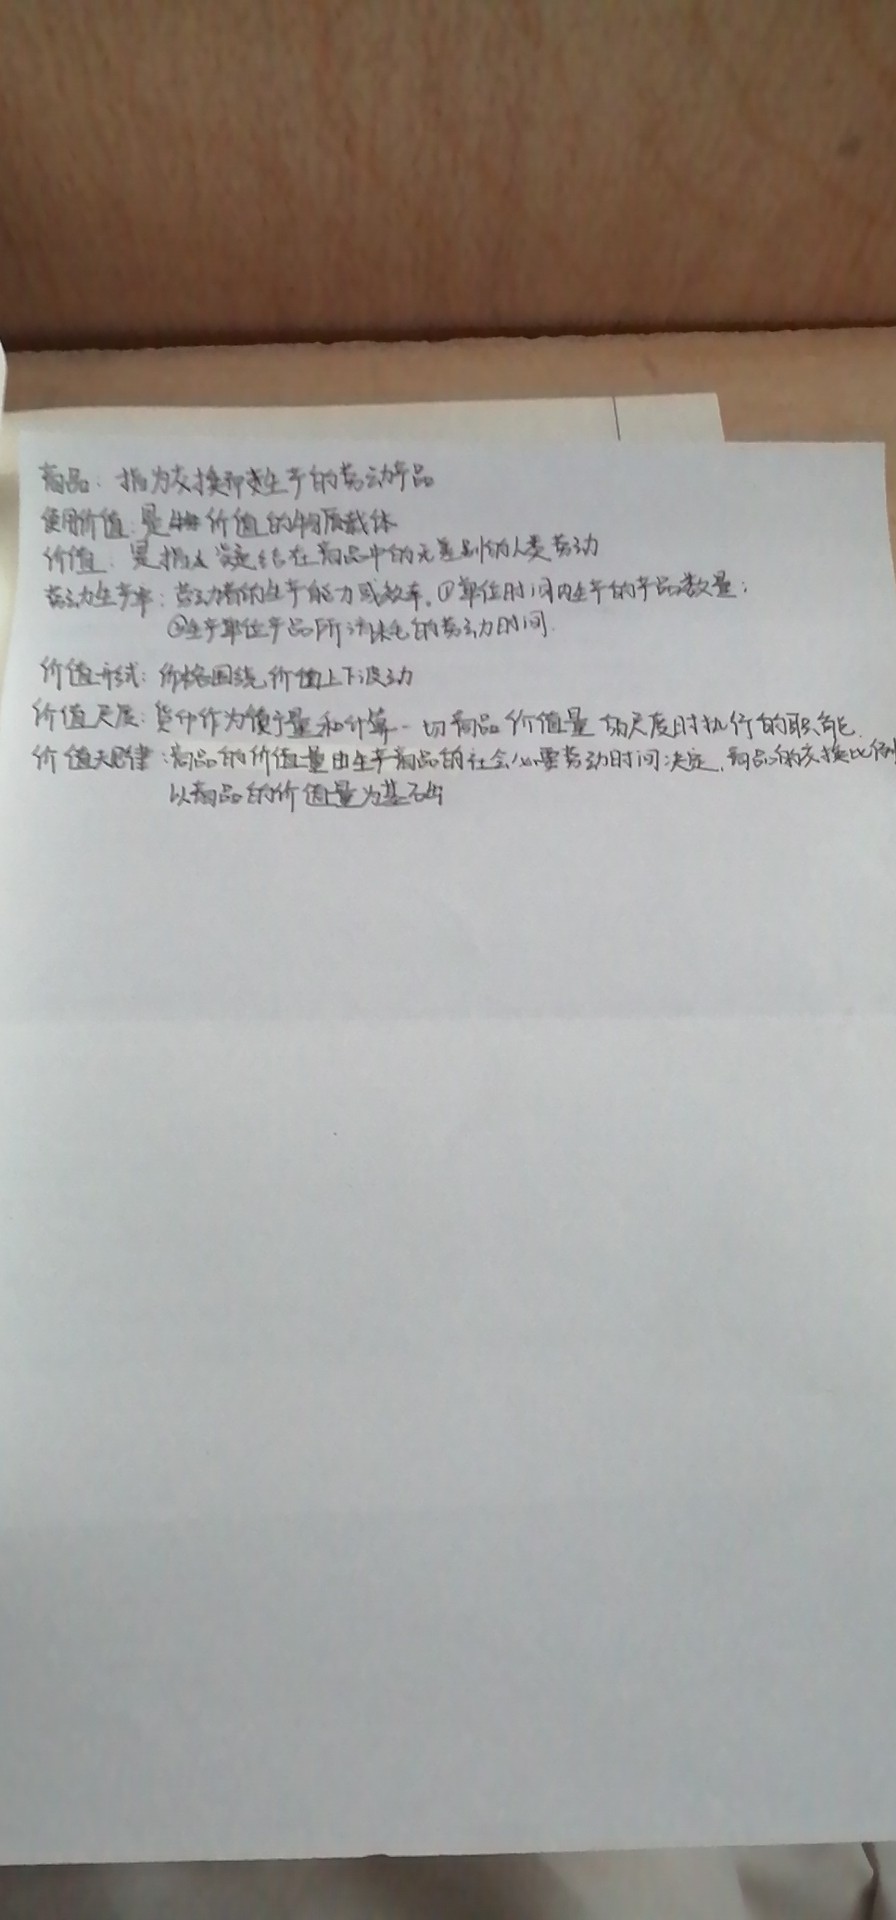 商品：指为交换而生产的劳动产品
使用价值：是价值的物质载体
价值：是指凝结在商品中的无差别的人类劳动
劳动生产率：劳动者的生产能力或效率。①单位时间内生产的产品数量；
②生产单位产品所消耗的劳动时间.
价值形式：价格围绕价值上下波动
价值尺度：货币作为衡量和计算一切商品价值量的尺度时执行的职能.
价值规律：商品的价值量由生产商品的社会必要劳动时间决定，商品的交换比例
以商品的价值量为基础